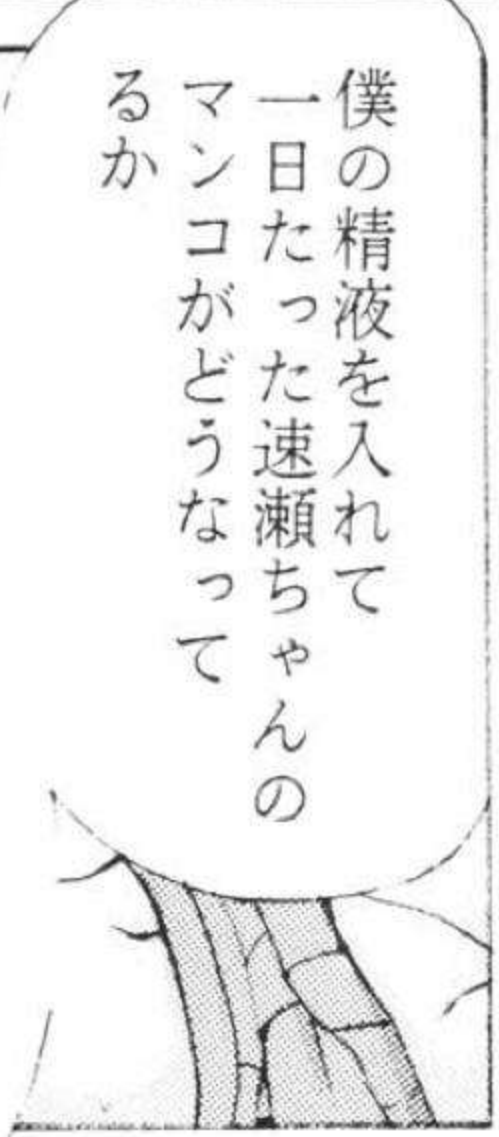 僕の精液を入れて
一日たった速瀬ちゃんの
マンコがどうなって
るか